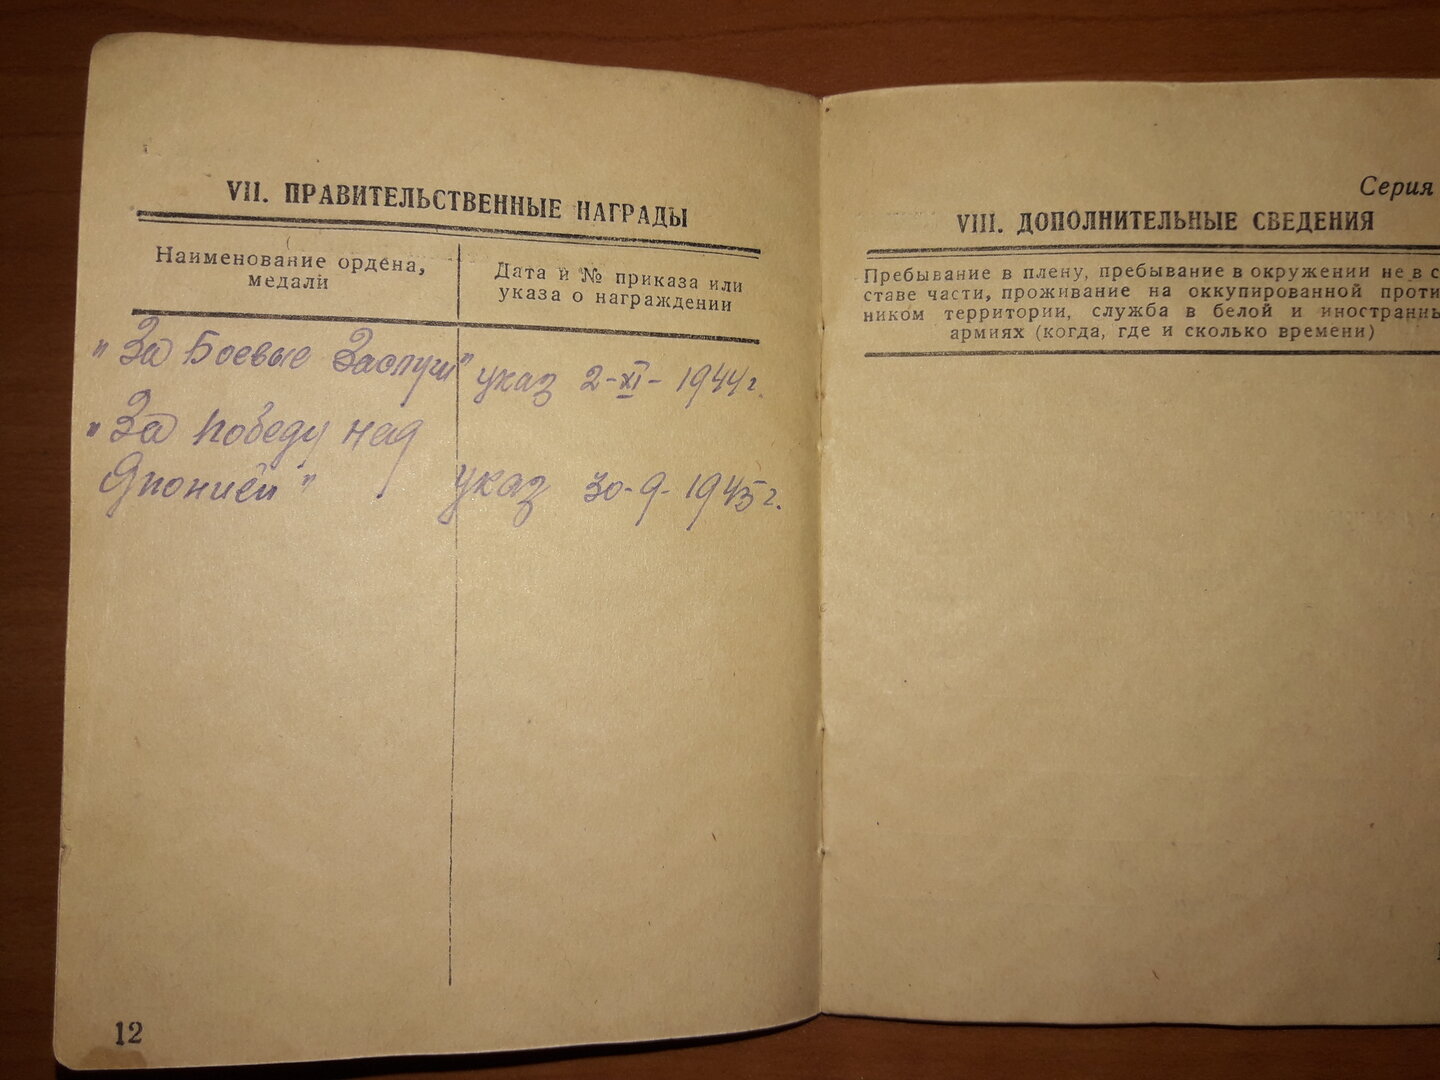 VII. ПРАВИТЕЛЬСТВЕННЫЕ НАГРАДЫ
Наименование ордена,
медали
Дата и № приказа или
указа о награждении
"За Боевые Заслуги" указ 2-XI-1944г.
"За победу над
Японией" указ 30-9-1945г.
12
Серия
VIII. ДОПОЛНИТЕЛЬНЫЕ СВЕДЕНИЯ
Пребывание в плену, пребывание в окружении не в с
ставе части, проживание на оккупированной проти
ником территории, служба в белой и иностранны
армиях (когда, где и сколько времени)